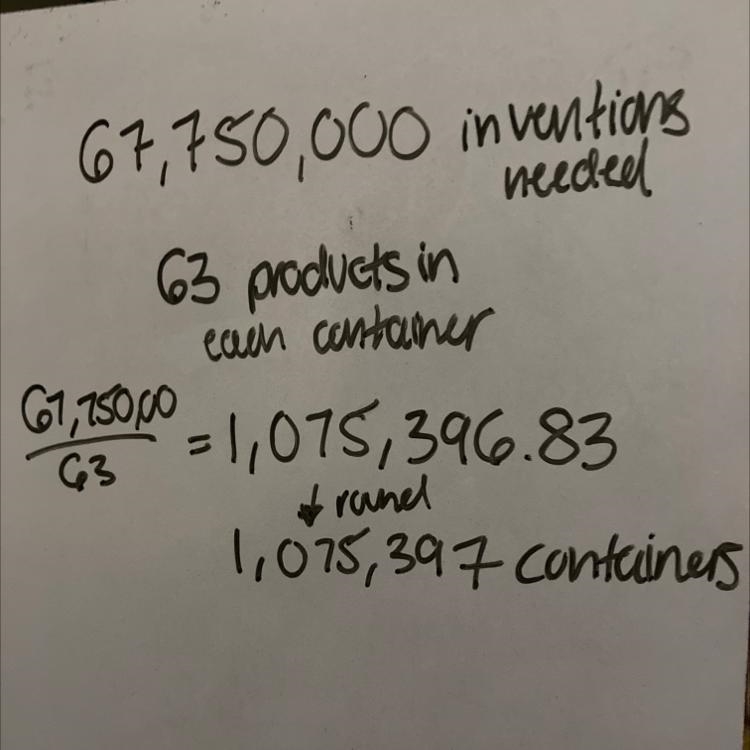 67,750,000 inventions
needed
63 products in
each container
67,750,00
63
= 1,075,396.83
↓ round
1,075,397 containers